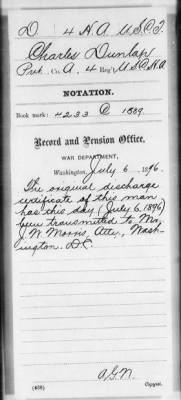 D 4 H.A. U.S.C.T.
Charles Dunlap
Pvt., Co. A, 4 Reg't U.S.C.H.A.
NOTATION.
Book mark: 4233 C 1889
Record and Pension Office,
WAR DEPARTMENT,
Washington, July 6, 1896.
The original discharge
certificate of this man
has this day (July 6, 1896)
been transmitted to Mr.
J. W. Morris, Atty., Wash-
ington, D.C.
A.G.N.
(438) Copyist.